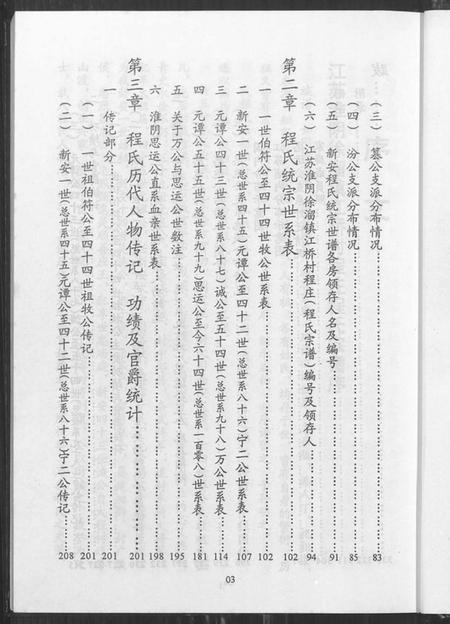 （三） 篁公支派分布情况……83
（四） 汾公支派分布情况……85
（五） 新安程氏统宗世谱各房领存人名及编号……91
（六） 江苏淮阴徐溜镇江桥村程庄（程氏宗谱）编号及领存人……94
第二章 程氏统宗世系表……102
一 一世伯符公至四十四世牧公世系表……102
二 新安一世（总世系四十五）元谭公至四十二世（总世系八十六）宁二公世系表……107
三 元谭公四十三世（总世系八十七）诚公至五十四世（总世系九十八）万公世系表……114
四 元谭公五十五世（总世系九十九）思运公至今六十四世（总世系一百零八）世系表……181
五 关于万公与思运公世数注……195
六 淮阴思运公直系血亲世系表……198
第三章 程氏历代人物传记 功绩及官爵统计……201
一 传记部分……201
（一） 一世祖伯符公至四十四世祖牧公传记……201
（二） 新安一世（总世系四十五）元谭公至四十二世（总世系八十六）宁二公传记……208
03